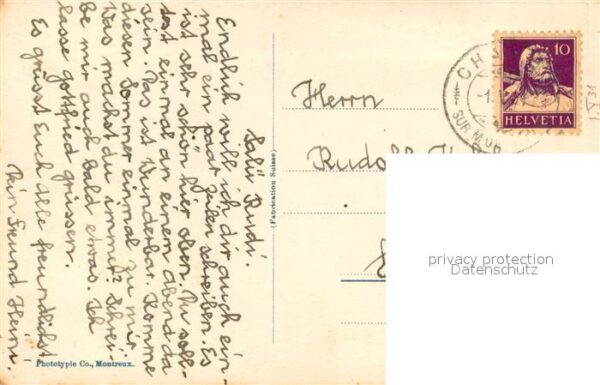 Salü Rudi.
Endlich will ich dir auch ein-
mal ein paar Zeilen schreiben. Es
ist sehr schön hier oben. Du soll-
test einmal an einem Abend da
sein. Das ist Wunderbar. Komme
diesen Sommer einmal zu mir.
Was machst du immer? Schrei-
be mir auch bald etwas. Ich
lasse Gottfried grüssen.
Es grüsst Euch Alle freundlichst
Dein Freund Heini.
Phototypie Co., Montreux.
(Fabrication Suisse)
Herrn
Rudolf
10
HELVETIA
SUR MO
privacy protection
Datenschutz